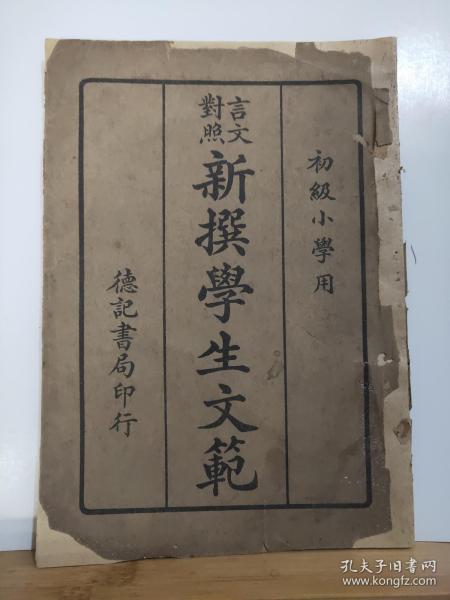 初級小學用
言文
對照
新撰學生文範
德記書局印行
孔夫子旧书网
www.kongfz.com